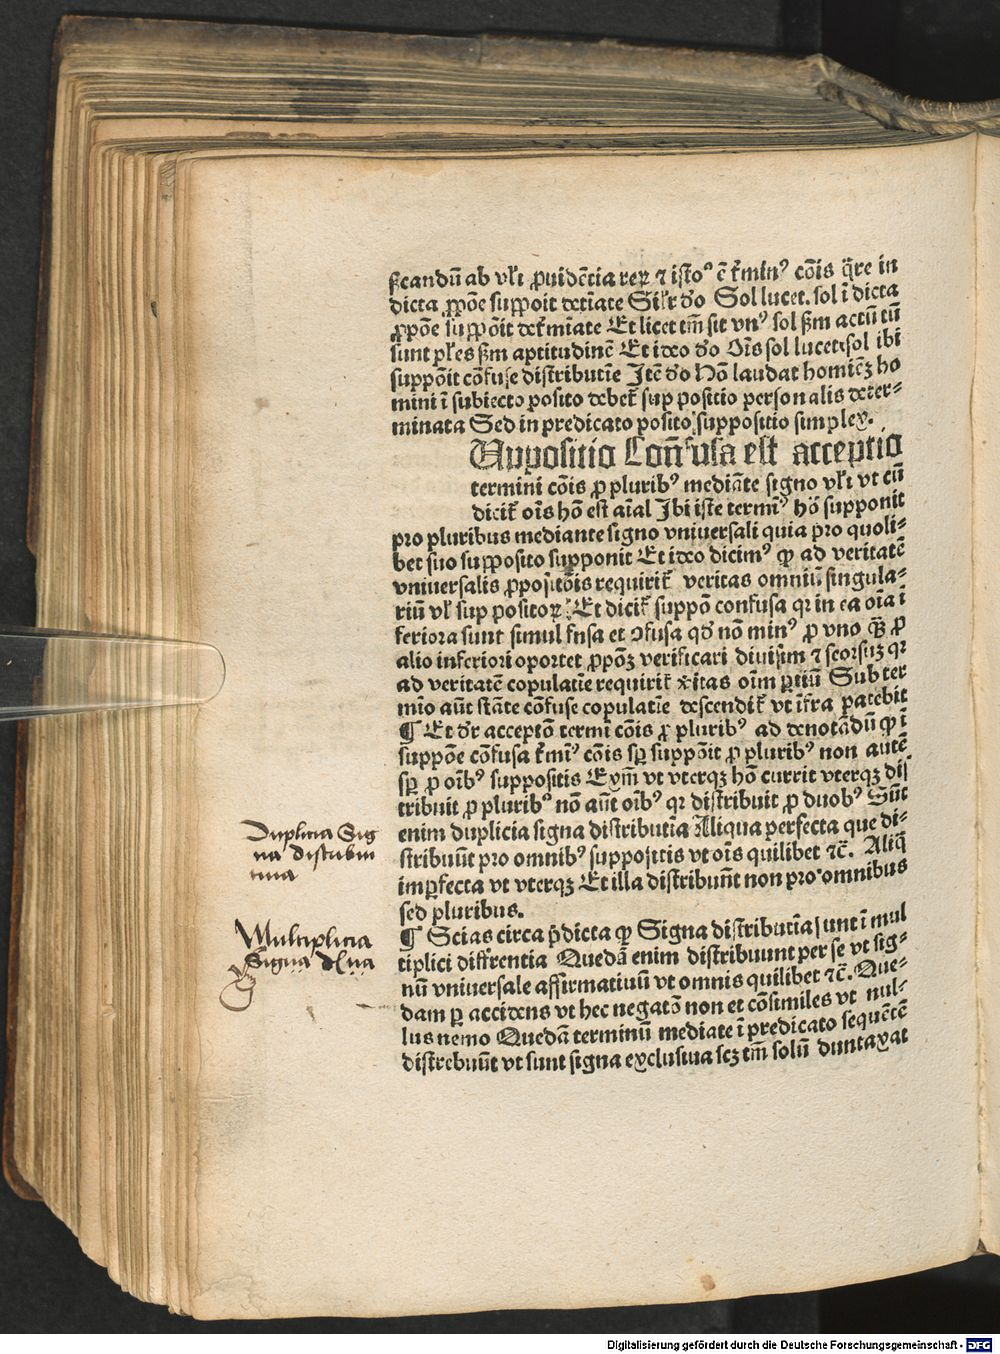 ẜcandū ab vl̓i ꝓuidētia reꝝ ⁊ iſto⁹ ē ťmin⁹ cōis q̄re in
dicta ꝓpōe ſuppoit deťiate Sil̓r dō Sol lucet. ſol ī dicta
ꝓpōe ſuppōit deťmīate Et licet tm̄ ſit vn⁹ ſol ẜm actū tn̄
ſunt pl̓es ẜm aptitudinē Et ideo dō Oīs ſol lucet. ſol ibi
ſuppōit cōfuſe diſtributīe Itē dō Nō laudat homiēꝫ ho
mini ī ſubiecto poſito debet̓ ſuppoſitio perſonalis deter⸗
minata Sed in predicato poſito ſuppoſitio ſimplex.
Uppoſitio Confuſa eſt acceptio
termini cōis ꝓ plurib⁹ mediāte ſigno vl̓i vt cū
dicit̓ oīs hō eſt aīal Ibi iſte termin⁹ hō ſupponit
pro pluribus mediante ſigno vniuerſali quia pro quoli⸗
bet ſuo ſuppoſito ſupponit Et ideo dicim⁹ ꝙ ad veritatē
vniuerſalis ꝓpoſitōis requirit̓ veritas omniū ſingula⸗
riū vl̓ ſuppoſitoꝝ. Et dicit̓ ſuppō confuſa qꝛ in ea oīa ī
feriora ſunt ſimul fuſa et ꝯfuſa qd̓ nō min⁹ ꝓ vno qͣꝫ ꝓ
alio inferiori oportet ꝓpōꝫ verificari diuiſim ⁊ ſeorſuꝫ qꝛ
ad veritatē copulatīe requirit̓ v̓itas oīm ꝑtiū Sub ter
mīo aūt ſtāte cōfuſe copulatīe deſcendit̓ vt īfra patebit
¶ Et dr̄ acceptō termī cōis ꝓ plurib⁹ ad denotādū ꝙ ī
ſuppōe cōfuſa ťmī⁹ cōis ſꝑ ſuppōit ꝓ plurib⁹ non autē
ſꝑ ꝓ oīb⁹ ſuppoſitis Exm̄ vt vterqꝫ hō currit vterqꝫ diſ
tribuit ꝓ plurib⁹ nō aūt oīb⁹ qꝛ diſtribuit ꝓ duob⁹ Sūt
enim duplicia ſigna diſtributīa Aliqua perfecta que di⸗
ſtribuūt pro omnib⁹ ſuppoſitis vt oīs quilibet ⁊c̄. Aliq̄
imꝑfecta vt vterqꝫ Et illa diſtribuūt non pro omnibus
ſed pluribus.
¶ Scias circa p̄dicta ꝙ Signa diſtributīa ſunt ī mul
tiplici diffrentia Quedā enim diſtribuunt per ſe vt ſig⸗
nū vniuerſale affirmatiuū vt omnis quilibet ⁊c̄. Que⸗
dam ꝑ accidens vt hec negatō non et cōſimiles vt nul⸗
lus nemo Quedā terminū mediate ī predicato ſequētē
diſtrebuūt vt ſunt ſigna excluſiua ſcꝫ tm̄ ſolū duntaxat
Duplicia Sig
na diſtribu
tiua
Multiplicia
Signa
Digitalisierung gefördert durch die Deutsche Forschungsgemeinschaft - DFG